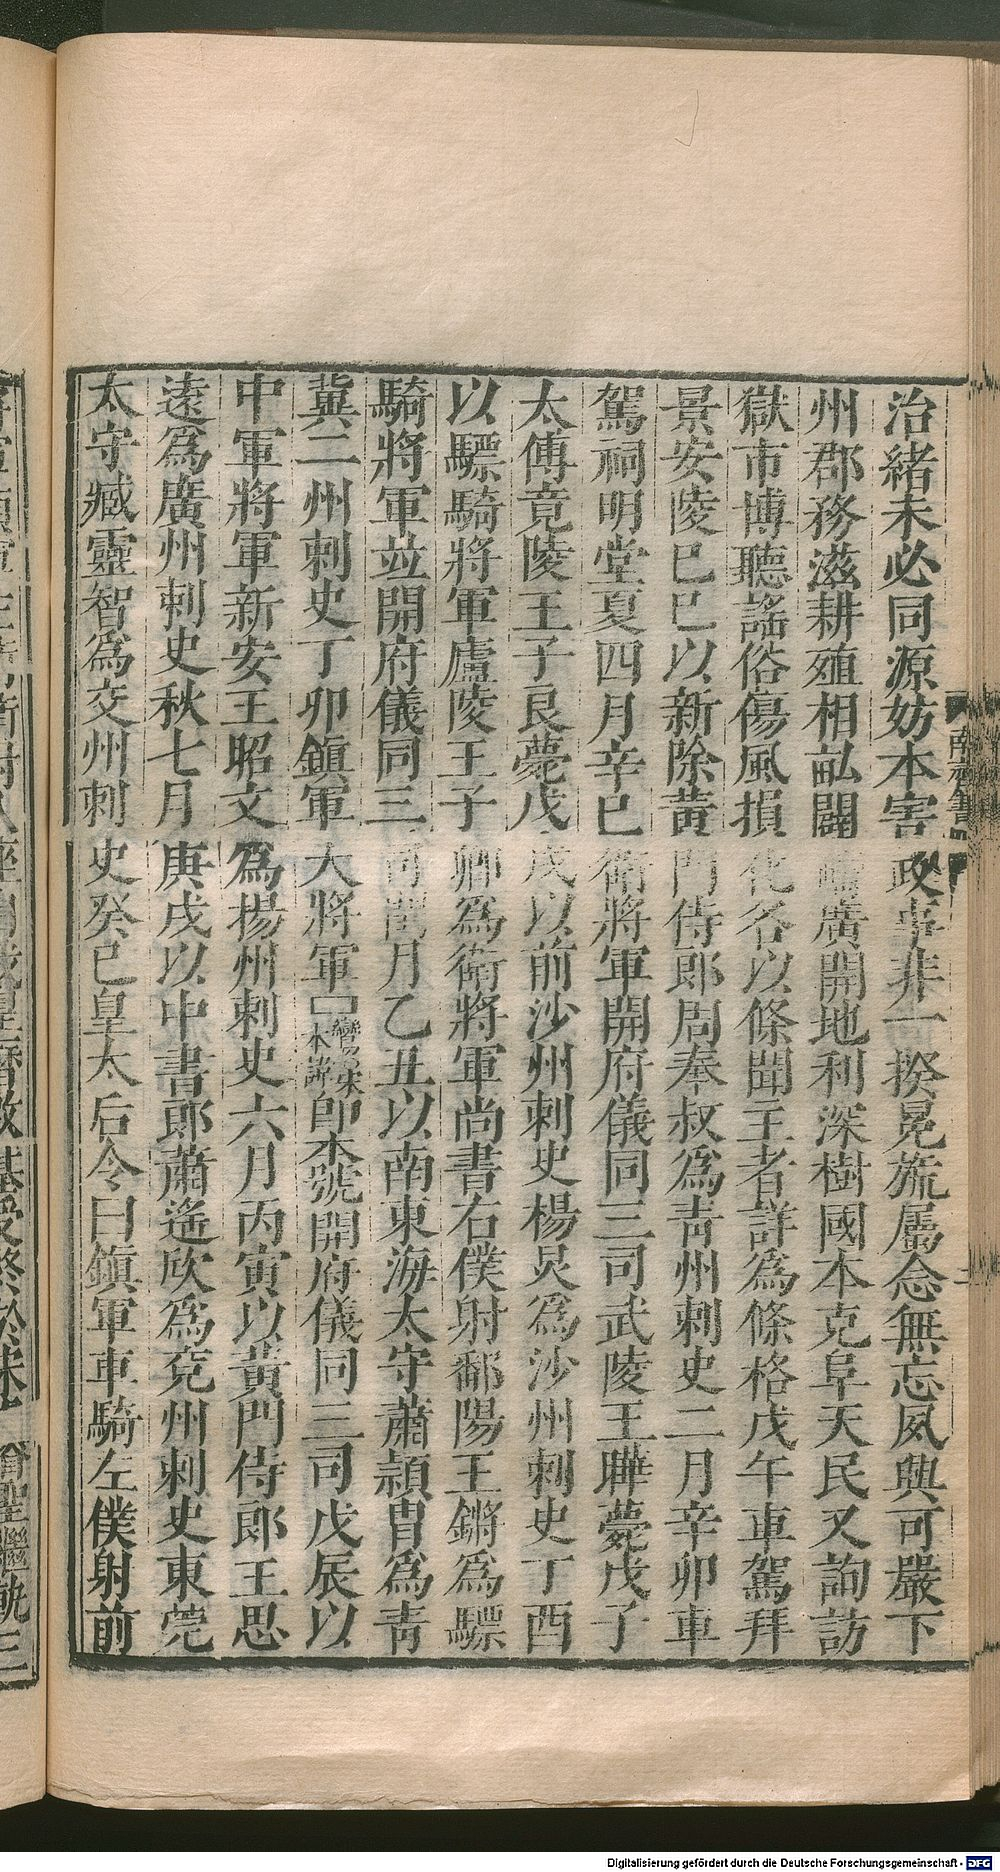 治緒未必同源妨本害政事非一揆冕旒屬念無忘夙興可嚴下
州郡務滋耕殖相畝闢疇廣開地利深樹國本克阜天民又詢訪
獄市博聽謠俗傷風損化各以條聞王者詳爲條格戊午車駕拜
景安陵巳巳以新除黃門侍郎周奉叔爲青州刺史二月辛卯車
駕祠明堂夏四月辛巳衛將軍開府儀同三司武陵王曄薨戊子
太傅竟陵王子良薨戊戌以前沙州刺史楊炅爲沙州刺史丁酉
以驃騎將軍廬陵王子卿爲衛將軍尚書右僕射鄱陽王鏘爲驃
騎將軍並開府儀同三司閏月乙丑以南東海太守蕭頴胄爲青
冀二州刺史丁卯鎭軍大將軍鸞宋本諱即本號開府儀同三司戊辰以
中軍將軍新安王昭文爲揚州刺史六月丙寅以黃門侍郎王思
遠爲廣州刺史秋七月庚戌以中書郎蕭遙欣爲兗州刺史東莞
太守臧靈智爲交州刺史癸巳皇太后令曰鎭軍車騎左僕射前
南齊書四
Digitalisierung gefördert durch die Deutsche Forschungsgemeinschaft - DFG